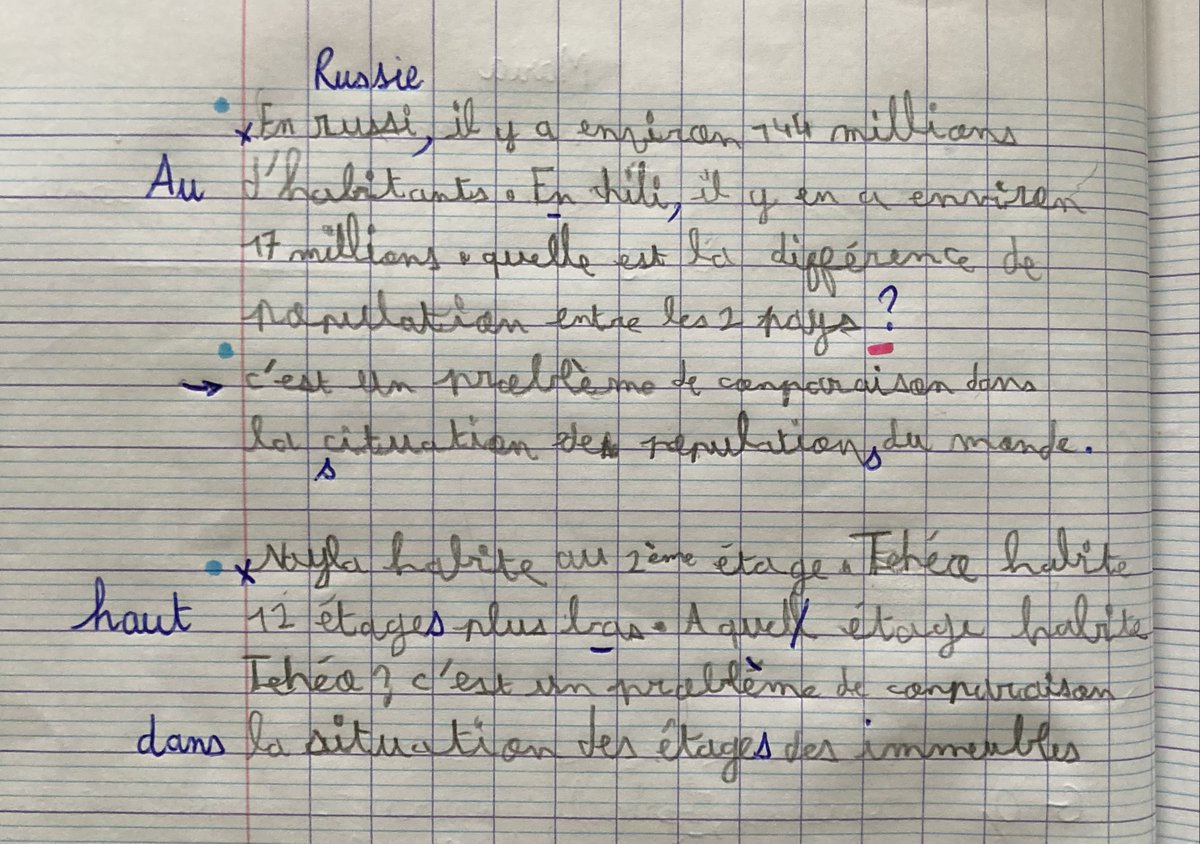 Russie
x En russi, il y a environ 144 millions
Au d'habitants. En chili, il y en a environ
17 millions. quelle est la différence de
population entre les 2 pays ?
→ c'est un problème de comparaison dans
la cituation des populations du monde.
s
x Nayla habite au 2ème étage. Tehéa habite
haut 12 étages plus bas. A quel étage habite
Tehéa ? c'est un problème de comparaison
dans la situation des étages des immeubles